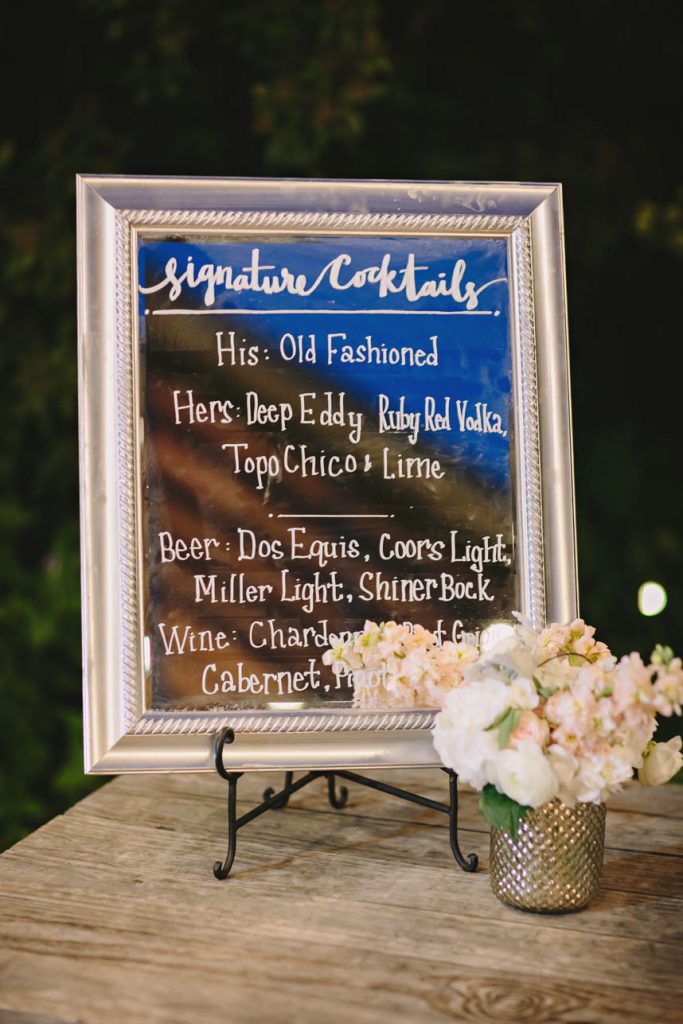 Signature Cocktails
His: Old Fashioned
Hers: Deep Eddy Ruby Red Vodka,
Topo Chico & Lime
Beer: Dos Equis, Coors Light,
Miller Light, Shiner Bock
Wine:
Cabernet,